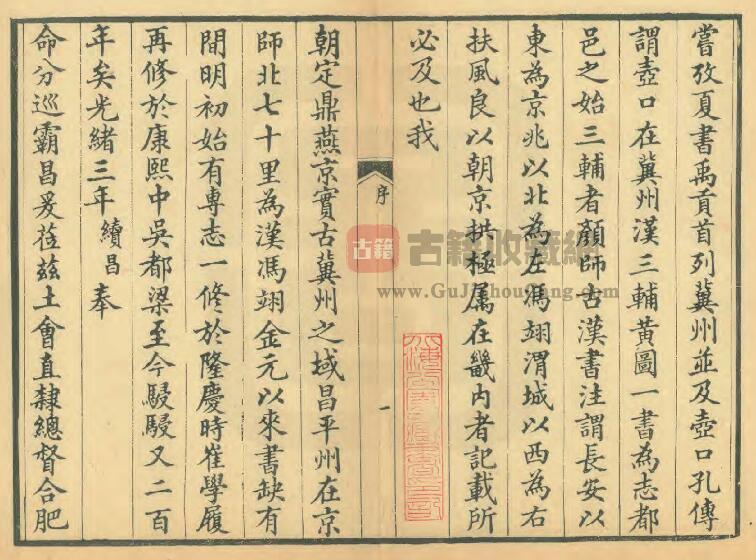 嘗攷夏書禹貢首列冀州並及壺口孔傳
謂壺口在冀州漢三輔黃圖一書為志都
邑之始三輔者顏師古漢書注謂長安以
東為京兆以北為左馮翊渭城以西為右
扶風良以朝京拱極属在畿内者記載所
必及也我
序
一
朝定鼎燕京實古冀州之域昌平州在京
師北七十里為漢馮翊金元以來書缺有
間明初始有專志一修於隆慶時崔學履
再修於康熙中吳都梁至今駸駸又二百
年矣光緒三年續昌奉
命分巡霸昌爰莅兹土會直隸總督合肥
古籍
古籍收藏網
www.GuJiShouCang.com